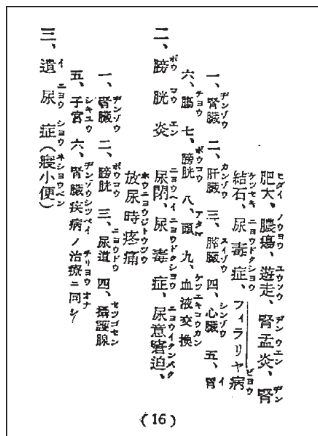 肥大、膿瘍、遊走、腎盂炎、腎
結石、尿毒症、フィラリヤ病
一、腎臓 二、肝臓 三、膵臓 四、心臓 五、胃
六、腸 七、膀胱 八、頭 九、血液交換
二、膀胱炎 尿閉、尿毒症、尿意窘迫、
放尿時疼痛
一、腎臓 二、膀胱 三、尿道 四、攝護腺
五、子宮 六、腎臓疾病ノ治療ニ同シ
三、遺尿症(寝小便)
(16)